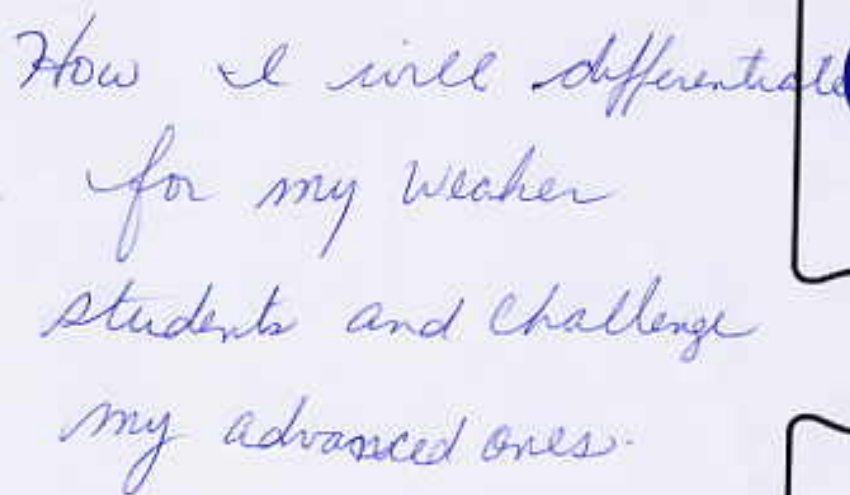 How I will differentiate
for my weaker
students and challenge
my advanced ones.